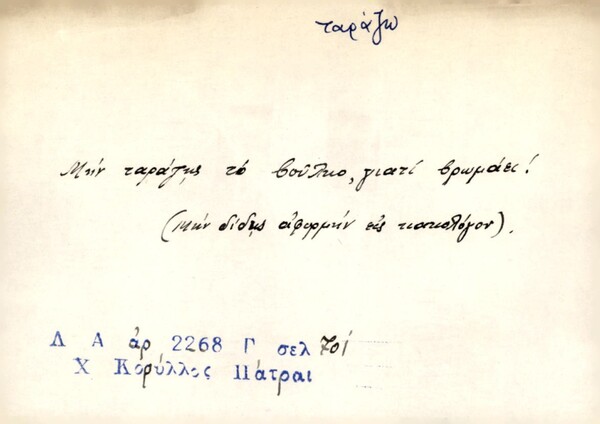 ταράζω
Μήν ταράζης τό βοῦλκο, γιατί βρωμάει!
(μήν δίδης ἀφορμήν εἰς κακολόγον).
Λ Α ἀρ 2268 Γ σελ 701
Χ Κορύλλος Πάτραι